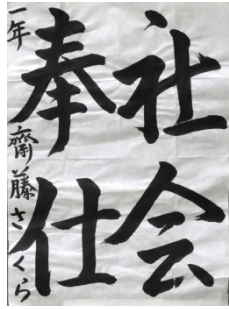 社会
奉仕
一年 齋藤さくら